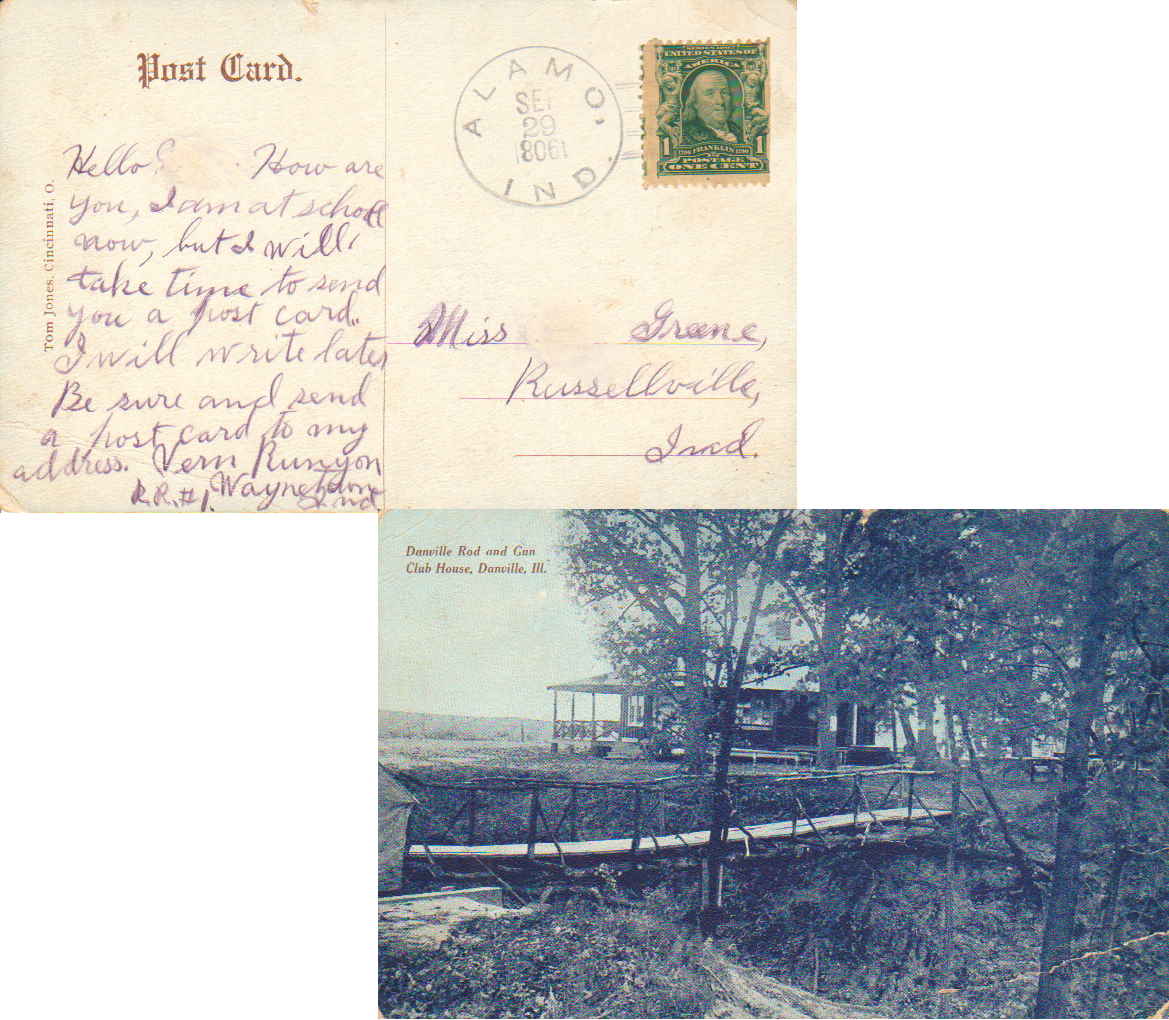 Post Card.
ALAMO,
SEP
29
1908
IND.
SERIES 1902
UNITED STATES OF
AMERICA
1 1706 FRANKLIN 1790 1
POSTAGE
ONE CENT
Tom Jones, Cincinnati, O.
Hello How are
you, I am at school
now, but I will
take time to send
you a post card.
I will write later
Be sure and send
a post card to my
address. Vern Runyon
R.R.#1, Waynetown
Ind
Miss Greene,
Russellville,
Ind.
Danville Rod and Gun
Club House, Danville, Ill.